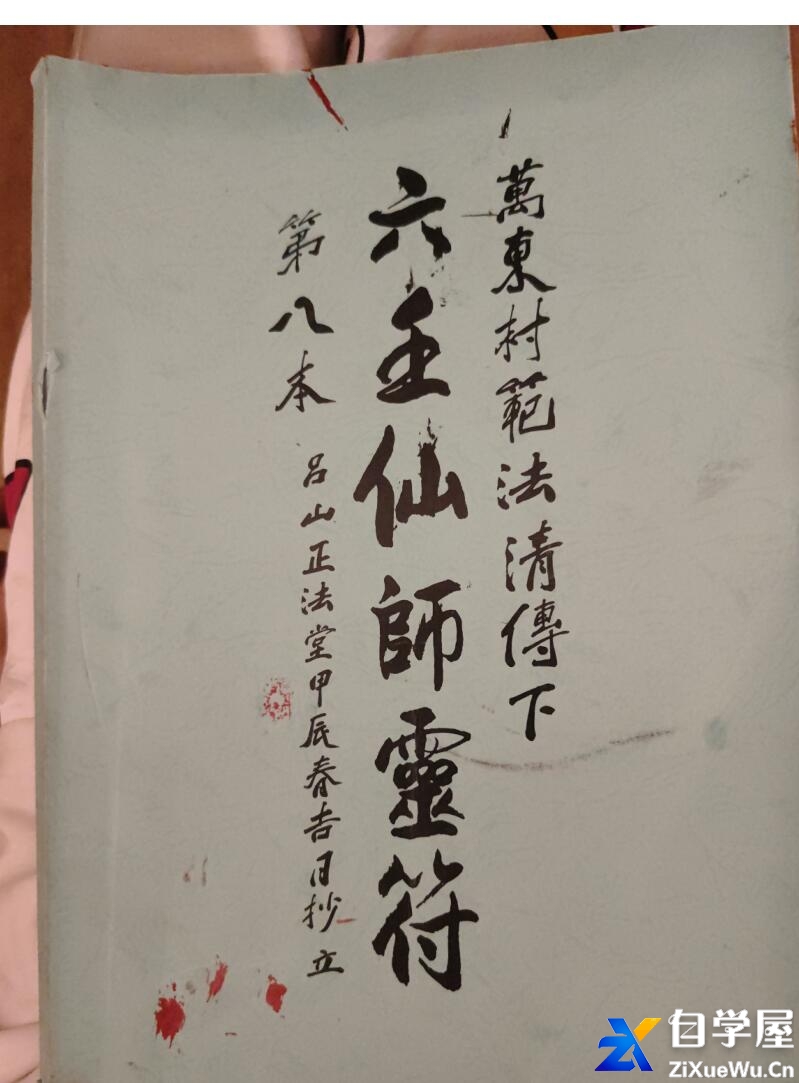 萬東村範法清傳下
六壬仙師靈符
第八本
呂山正法堂甲辰春吉日抄立
自学屋
ZiXueWu.Cn